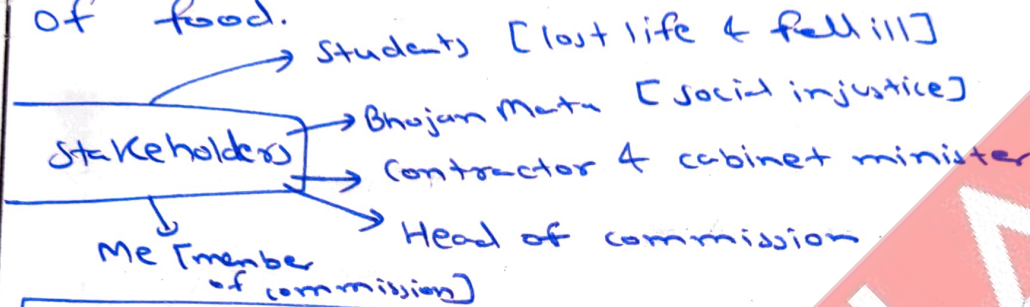 of food.
Students [lost life & fell ill]
Bhojan Mata [social injustice]
Stakeholders
Contractor & cabinet minister
Head of commission
Me [member
of commission]